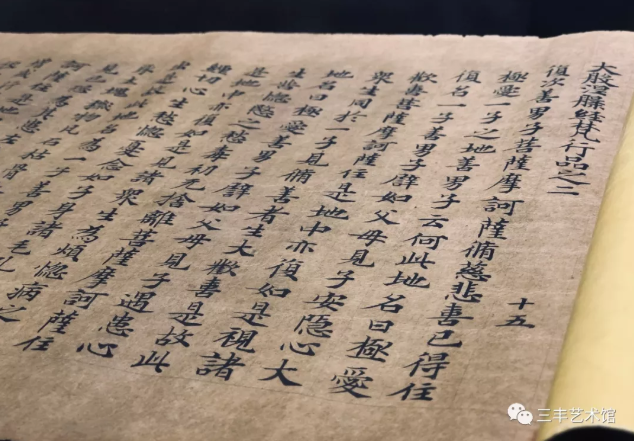 大般涅槃經梵行品之二 十五
復次善男子菩薩摩訶薩脩慈悲喜已得住
極愛一子之地善男子云何此地名曰極愛
復名一子善男子譬如父母見子安隱心大
歡喜菩薩摩訶薩住是地中亦復如是視諸
眾生同於一子見脩善者生大歡喜是故此
地名曰極愛善男子譬如父母見子遇患心
生苦惱愍之愁毒初无捨離菩薩摩訶薩住
是地中亦復如是見諸眾生為煩惱病之
纏切心生愁惱憂念如子身諸毛孔
三丰艺术馆